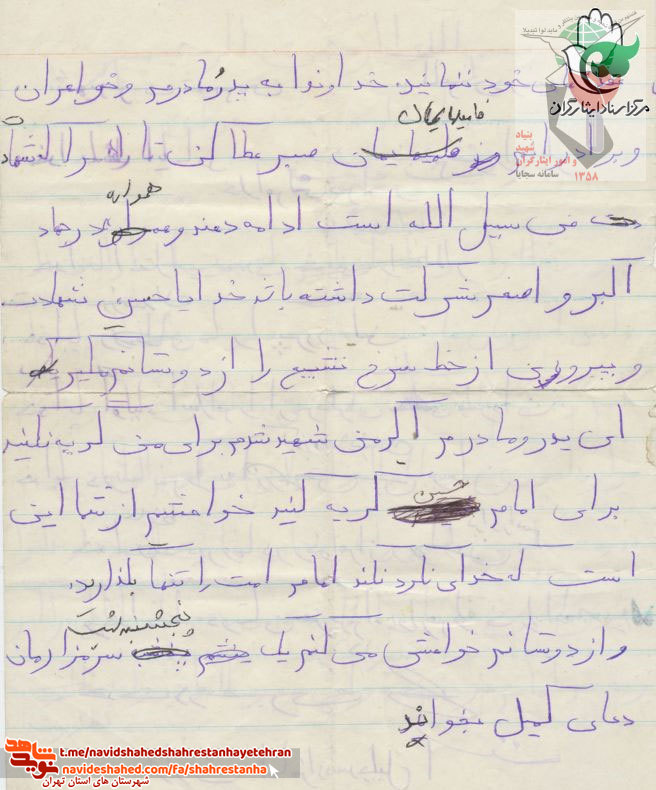 خود ننمائید. خداوندا به پدر و مادرم و خواهران
مرکز اسناد ایثارگران
فامیلهایمان
و برادرانم و صبر عطا کن تا راهم را که شهادت
بنیاد
شهید
و امور ایثارگران
سامانه سجایا
۱۳۵۸
همواره
فی سبیل الله است ادامه دهند و در جهاد
اکبر و اصغر شرکت داشته باشند خدایا حسن شهادت
و پیروی از خط سرخ تشیع را از دوستانم مگیر
ای پدر و مادرم اگر من شهید شدم برای من گریه نکنید
حسین
برای امام گریه کنید خواهشم از شما این
است که خدای نکرده نکند امام امت را تنها بگذارید.
پنجشنبه شب
و از دوستانم خواهش می کنم یک سر مزارمان
دعای کمیل بخوانند
t.me/navidshahedshahrestanhayetehran
navideshahed.com/fa/shahrestanha
شهرستان های استان تهران
نوید شاهد